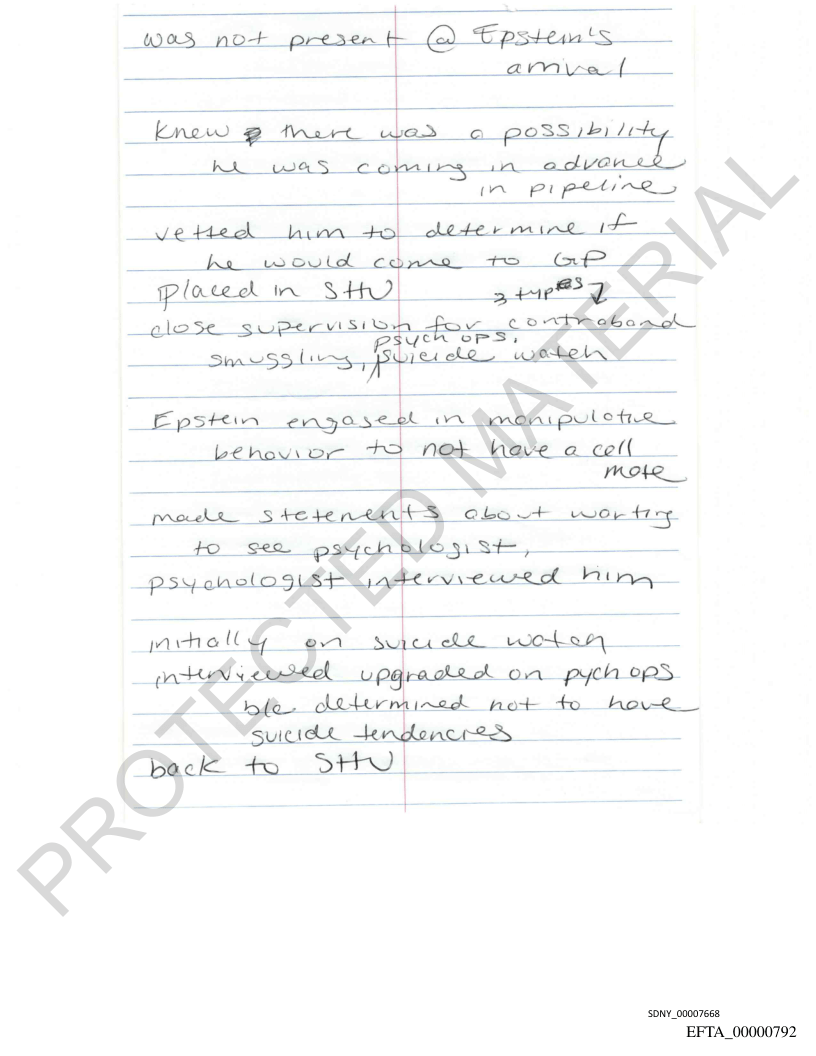 was not present @ Epstein's
arrival
Knew there was a possibility
he was coming in advance
in pipeline
vetted him to determine if
he would come to GP
Placed in SHU
3 types
close supervision for contraband
smuggling, psych ops, suicide watch
Epstein engaged in manipulative
behavior to not have a cell
mate
made statements about wanting
to see psychologist,
psychologist interviewed him
initially on suicide watch
interviewed upgraded on pych ops
b/c determined not to have
suicide tendencies
back to SHU
PROTECTED MATERIAL
SDNY_00007668
EFTA_00000792